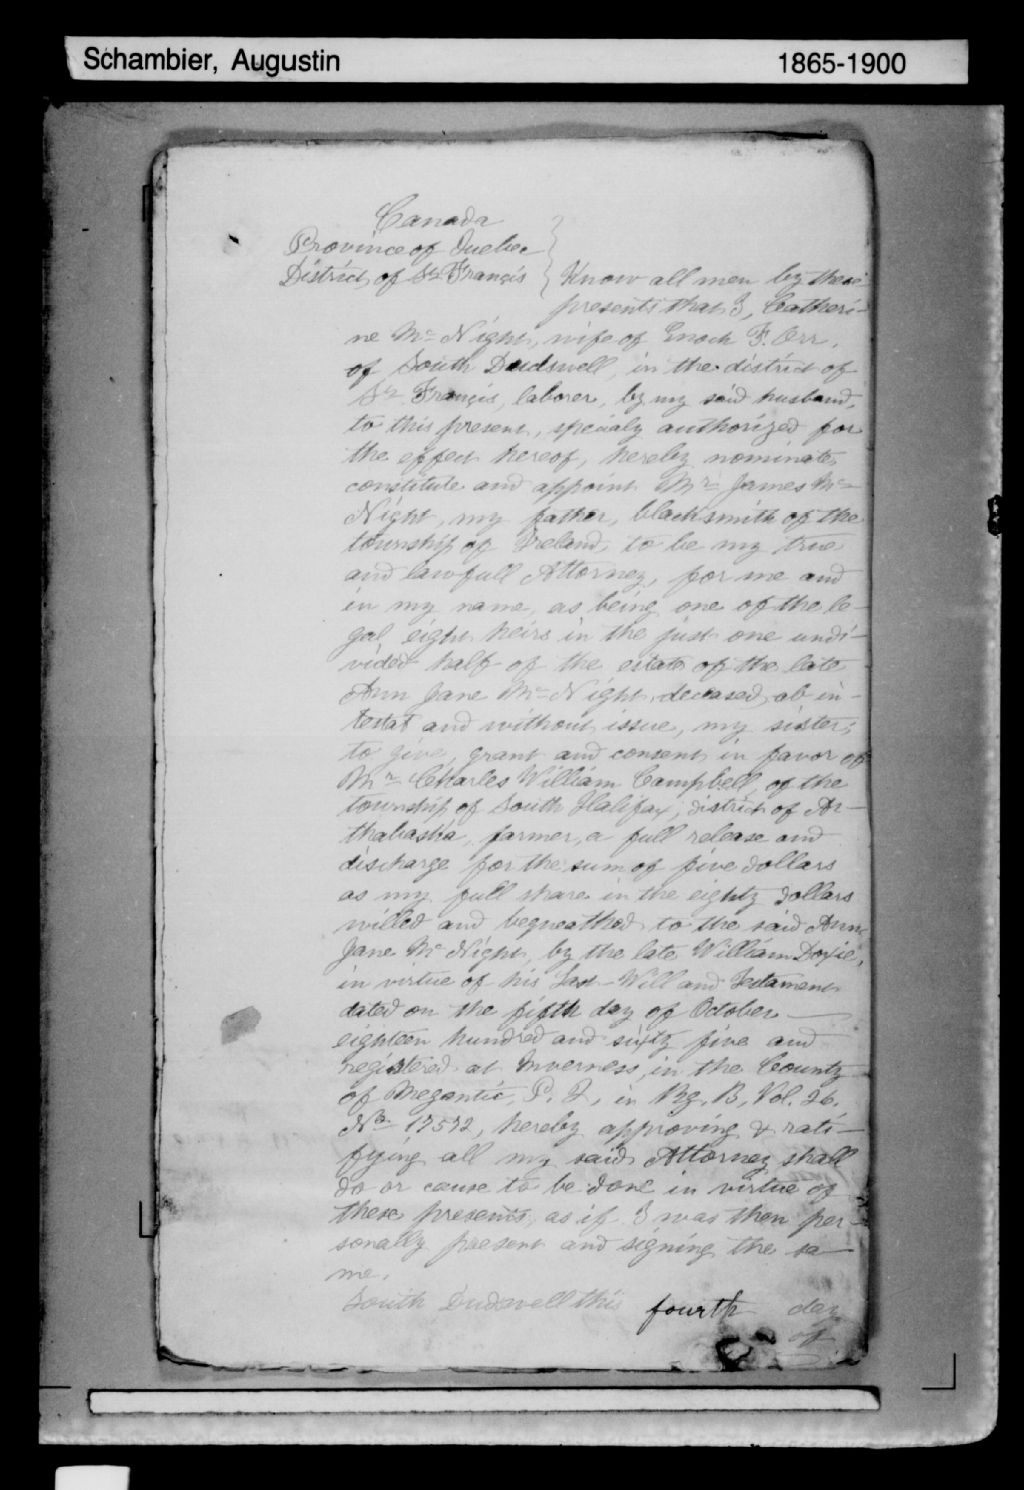 Schambier, Augustin 1865-1900
Canada
Province of Quebec
District of St Francis } Know all men by these
presents that I, Catheri-
ne Mc Night, wife of Enoch F. Orr,
of South Dudswell, in the district of
St Francis, laborer, by my said husband,
to this present, specialy authorized for
the effect hereof, hereby nominate,
constitute and appoint Mr James Mc
Night, my father, blacksmith of the
township of Ireland, to be my true
and lawfull Attorney, for me and
in my name, as being one of the le-
gal eight heirs in the just one undi-
vided half of the estate of the late
Ann Jane Mc Night, deceased, ab in-
testat and without issue, my sister;
to give, grant and consent in favor of
Mr Charles William Campbell, of the
township of South Halifax, district of Ar-
thabaska, farmer, a full release and
discharge for the sum of five dollars
as my full share in the eighty dollars
willed and bequeathed to the said Ann
Jane Mc Night, by the late William Doxie,
in virtue of his Last Will and Testament
dated on the fifth day of October
eighteen hundred and sixty five and
registered at Inverness, in the County
of Megantic, P. Q., in Rg. B, Vol. 26.
No 17572, hereby approving & rati-
fying all my said Attorney shall
do or cause to be done in virtue of
these presents, as if I was then per-
sonally present and signing the sa-
me.
South Dudswell this fourth day
of